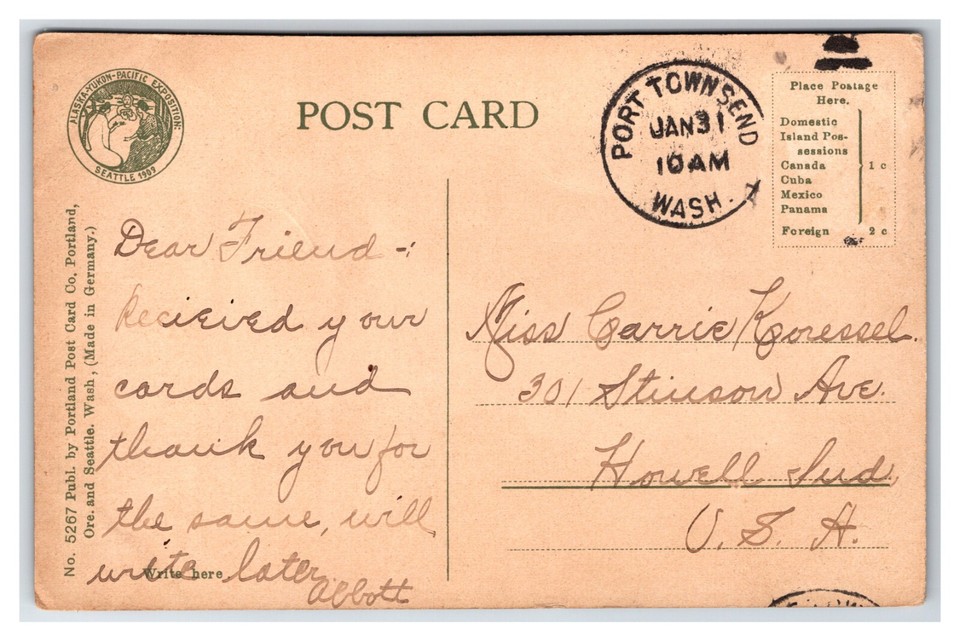 ALASKA-YUKON-PACIFIC EXPOSITION:
SEATTLE 1909
POST CARD
PORT TOWNSEND
JAN 31
10 AM
WASH.
Place Postage
Here.
Domestic
Island Pos-
sessions
Canada
Cuba
Mexico
Panama
1 c
Foreign 2 c
No. 5267 Publ. by Portland Post Card Co, Portland,
Ore. and Seattle. Wash, (Made in Germany.)
Dear Friend-:
Recieived your
cards and
thank you for
the same, will
write later
Abbott
Write here
Miss Carrie Koressel.
301 Stinson Ave.
Howell Ind.
U. S. A.